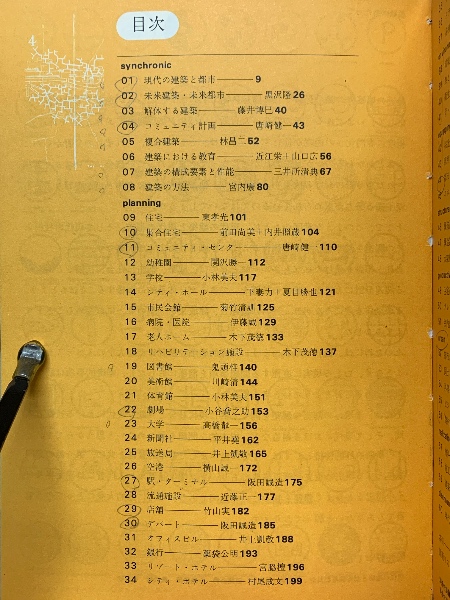 目次
synchronic
01 現代の建築と都市 9
02 未来建築・未来都市 黒沢隆 26
03 解体する建築 藤井博巳 40
04 コミュニティ計画 唐崎健一 43
05 複合建築 林昌二 52
06 建築における教育 近江栄+山口広 56
07 建築の構成要素と性能 三井所清典 67
08 建築の方法 宮内康 80
planning
09 住宅 東孝光 101
10 集合住宅 前田尚美+内井昭蔵 104
11 コミュニティ・センター 唐崎健一 110
12 幼稚園 関沢勝一 112
13 学校 小林美夫 117
14 シティ・ホール 下妻力+夏目勝也 121
15 市民会館 菊竹清訓 125
16 病院・医院 伊藤誠 129
17 老人ホーム 木下茂徳 133
18 リハビリテーション施設 木下茂徳 137
19 図書館 鬼頭梓 140
20 美術館 川崎清 144
21 体育館 小林美夫 151
22 劇場 小谷喬之助 153
23 大学 高橋靗一 156
24 新聞社 平井堯 162
25 放送局 井上凱敬 165
26 空港 横山誠一 172
27 駅・ターミナル 阪田誠造 175
28 流通施設 近藤正一 177
29 店舗 竹山実 182
30 デパート 阪田誠造 185
31 オフィスビル 井上凱敬 188
32 銀行 薬袋公明 193
33 リゾート・ホテル 宮脇檀 196
34 シティ・ホテル 村尾成文 199